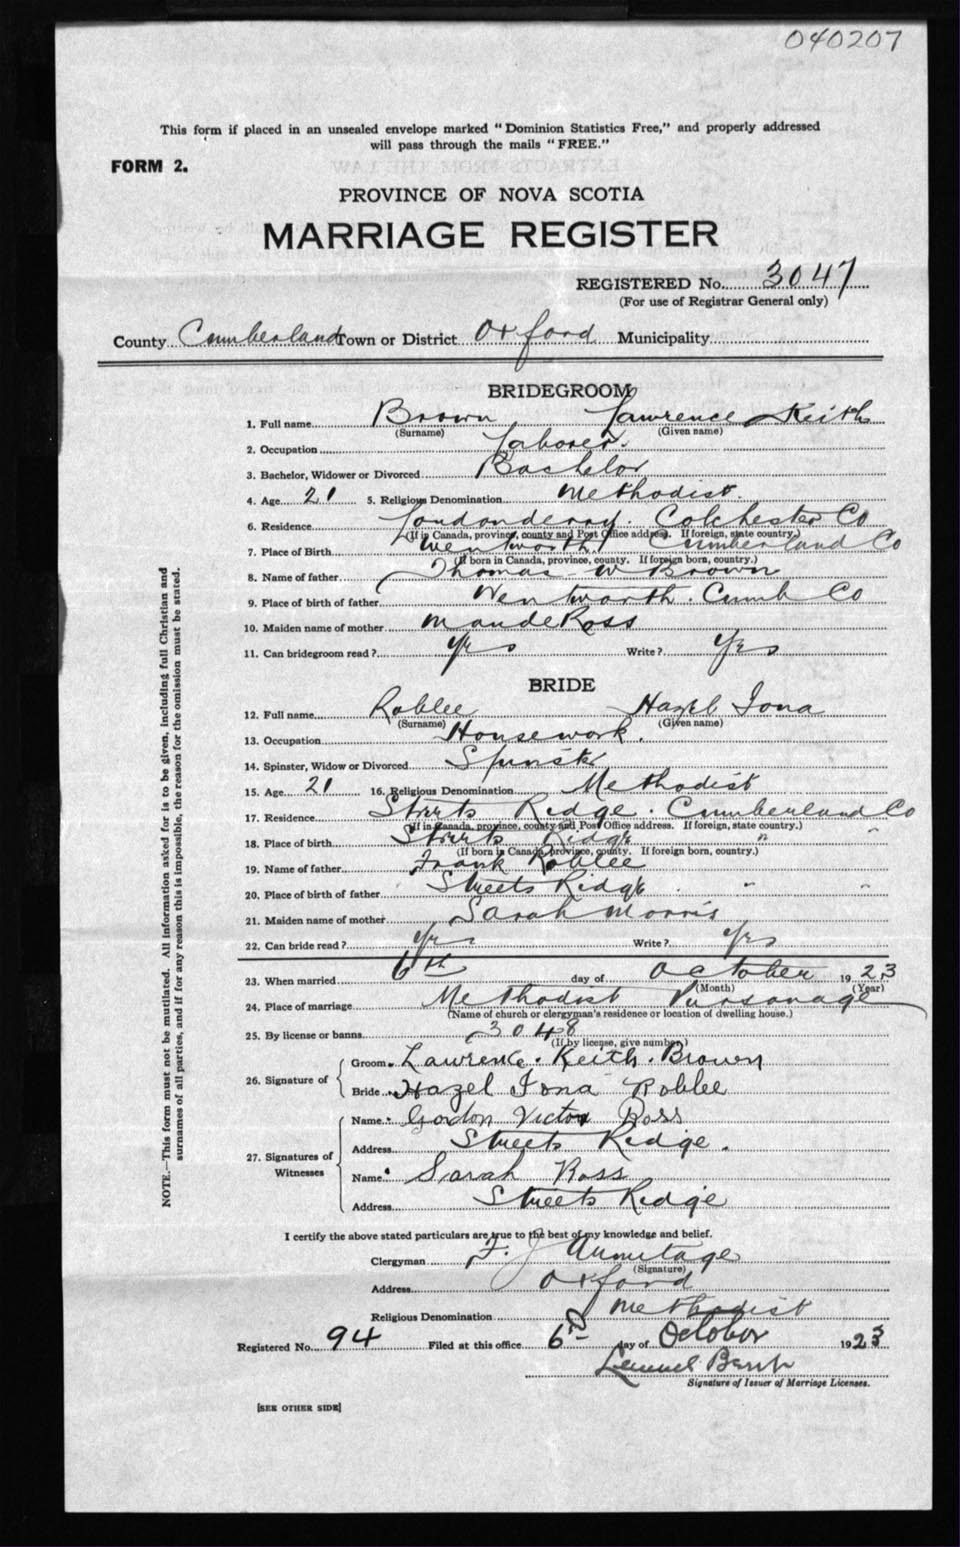 040207
This form if placed in an unsealed envelope marked "Dominion Statistics Free," and properly addressed
will pass through the mails "FREE."
FORM 2.
PROVINCE OF NOVA SCOTIA
MARRIAGE REGISTER
REGISTERED No. 3047
(For use of Registrar General only)
County Cumberland Town or District Oxford Municipality
BRIDEGROOM
1. Full name Brown Lawrence Keith
(Surname) (Given name)
2. Occupation Laborer.
3. Bachelor, Widower or Divorced Bachelor
4. Age 21 5. Religious Denomination Methodist.
6. Residence Londonderry Colchester Co
(If in Canada, province, county and Post Office address. If foreign, state country.)
7. Place of Birth Wentworth Cumberland Co
(If born in Canada, province, county. If foreign born, country.)
8. Name of father Thomas W Brown
9. Place of birth of father Wentworth. Cumb Co
10. Maiden name of mother Maude Ross
11. Can bridegroom read? Yes Write? Yes
BRIDE
12. Full name Roblee Hazel Iona
(Surname) (Given name)
13. Occupation Housework.
14. Spinster, Widow or Divorced Spinster
15. Age 21 16. Religious Denomination Methodist
17. Residence Streets Ridge. Cumberland Co
(If in Canada, province, county and Post Office address. If foreign, state country.)
18. Place of birth Streets Ridge " "
(If born in Canada, province, county. If foreign born, country.)
19. Name of father Frank Roblee
20. Place of birth of father Streets Ridge. " "
21. Maiden name of mother Sarah Morris
22. Can bride read? Yes Write? Yes
23. When married 6th day of October 1923
(Month) (Year)
24. Place of marriage Methodist Parsonage
(Name of church or clergyman's residence or location of dwelling house.)
25. By license or banns 3048
(If by license, give number)
26. Signature of Groom Lawrence. Keith. Brown
Bride Hazel Iona Roblee
27. Signatures of Witnesses Name Gordon Victor Ross
Address Streets Ridge.
Name Sarah Ross
Address Streets Ridge
I certify the above stated particulars are true to the best of my knowledge and belief.
Clergyman F. J Armitage
(Signature)
Address Oxford
Religious Denomination Methodist
Registered No. 94 Filed at this office 6th day of October 1923
Lemuel
Signature of Issuer of Marriage Licenses.
[SEE OTHER SIDE]
NOTE.—This form must not be mutilated. All information asked for is to be given, including full Christian and
surnames of all parties, and if for any reason this is impossible, the reason for the omission must be stated.